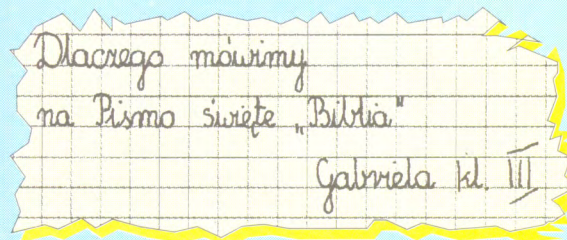 Dlaczego mówimy
na Pismo święte „Biblia"
Gabriela kl. III